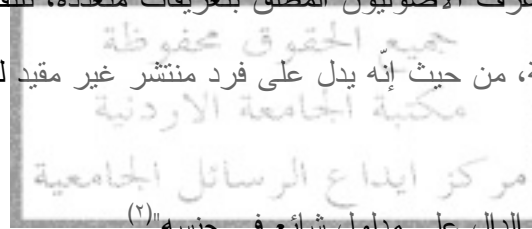 عرف الأصوليون المطلق بتعريفات متعددة،
جميع الحقوق محفوظة
، من حيث إنّه يدل على فرد منتشر غير مقيد
مكتبة الجامعة الاردنية
مركز ايداع الرسائل الجامعية
الدال على مدلول شائع في جنسه"(٢)